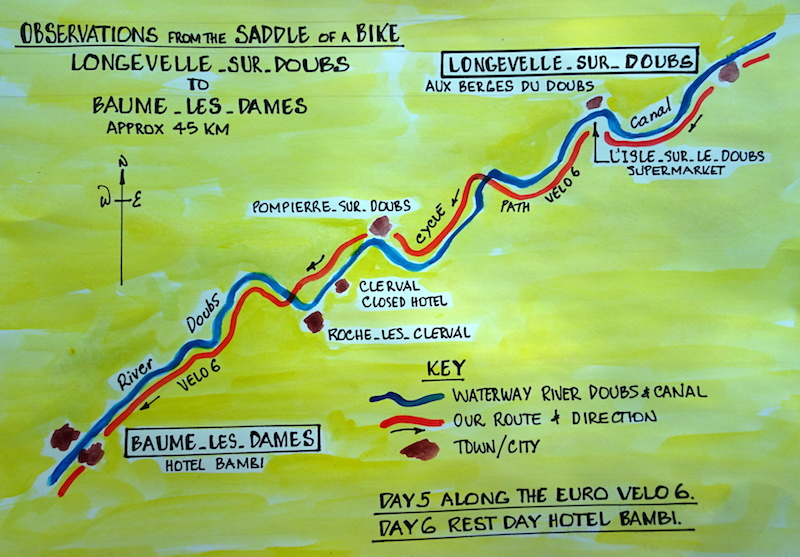 OBSERVATIONS FROM THE SADDLE OF A BIKE
LONGEVELLE_SUR_DOUBS
TO
BAUME_LES_DAMES
APPROX 45 KM
LONGEVELLE_SUR_DOUBS
AUX BERGES DU DOUBS
Canal
L'ISLE_SUR_LE_DOUBS
SUPERMARKET
N
W E
POMPIERRE_SUR_DOUBS
CYCLE PATH VELO 6
CLERVAL
CLOSED HOTEL
ROCHE_LES_CLERVAL
River Doubs
VELO 6
BAUME_LES_DAMES
HOTEL BAMBI
KEY
WATERWAY RIVER DOUBS & CANAL
OUR ROUTE & DIRECTION
TOWN/CITY
DAY 5 ALONG THE EURO VELO 6.
DAY 6 REST DAY HOTEL BAMBI.